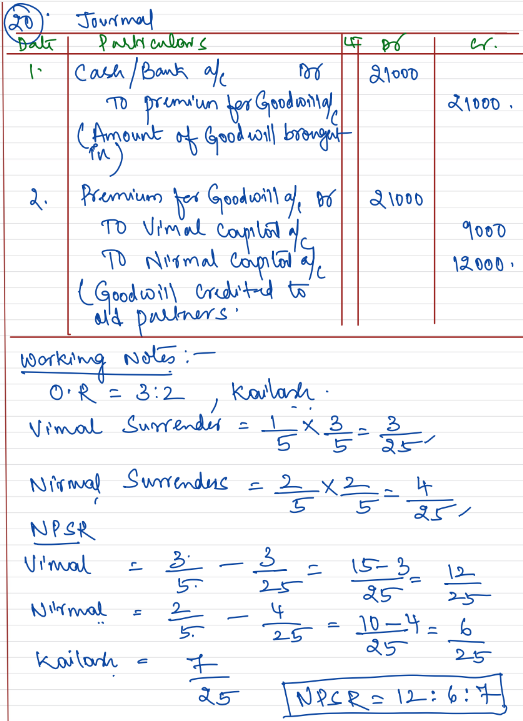 20. Journal
Date Particulars LF Dr Cr.
1. Cash/Bank a/c Dr 21000
To premium for Goodwill a/c 21000.
(Amount of Goodwill brought
in)
2. Premium for Goodwill a/c Dr 21000
To Vimal Capital a/c 9000
To Nirmal Capital a/c 12000.
(Goodwill credited to
old partners.
Working Notes :-
O.R = 3:2 , Kailash.
Vimal Surrender = 1/5 × 3/5 = 3/25
Nirmal Surrenders = 2/5 × 2/5 = 4/25
NPSR
Vimal = 3/5 - 3/25 = 15-3/25 = 12/25
Nirmal = 2/5 - 4/25 = 10-4/25 = 6/25
Kailash = 7/25
NPSR = 12:6:7